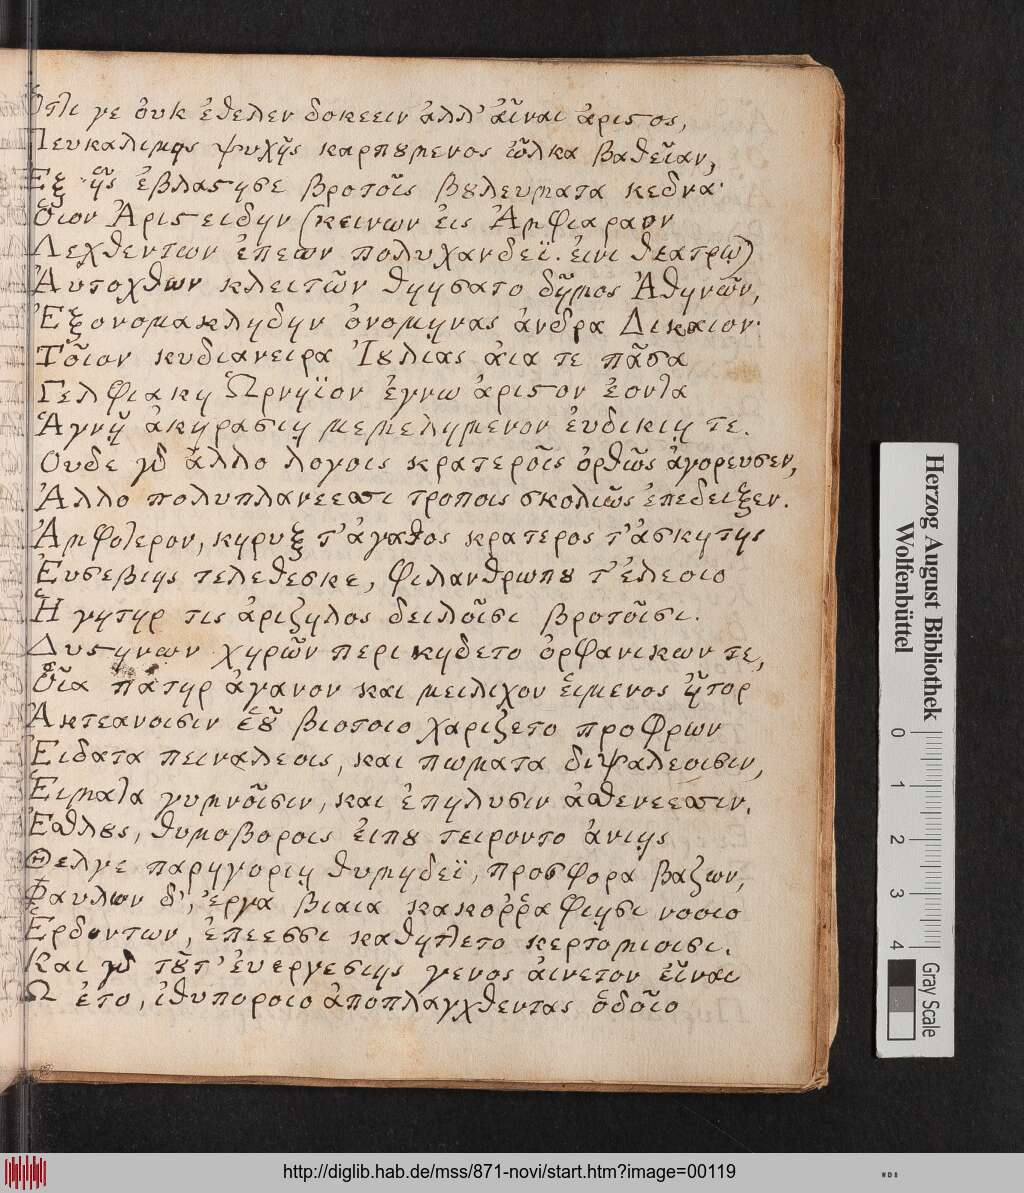 Ὅτlι γε ὀυκ ἐθελεν δοκεειν ἀλλ' ἀῖναι ἀριστος,
Πευκαλιμης ψυχῆς καρπουμενος ὦλκα βαθεῖαν,
Ἐξ ἧς ἐβλαστησε βροτοῖς βουλευματα κεδνα·
Ὅιον Ἀριστειδην (κεινων ἐις Ἀμφιαραον
Λεχθεντων ἐπεων πολυχανδεϊ. ἐινι θεατρῳ)
Ἀυτοχθων κλειτῶν θηησατο δῆμος Ἀθηνῶν,
Ἐξονομακληδην ὀνομηνας ἀνδρα Δικαιον·
Τοῖον κυδιανειρα Ἰουλιας ἀια τε πᾶσα
Γελφιακη Ὡρνηϊον ἐγνω ἀριστον ἐοντα
Ἁγνῇ ἀκηρασιῃ μεμελημενον ἐυδικιῃ τε.
Ουδε γὰρ ἄλλο λογοις κρατεροῖς ὀρθῶς ἀγορευσεν,
Ἀλλο πολυπλανεεσσι τροποις σκολιῶς ἐπεδειξεν.
Ἀμφοτερον, κηρυξ τ' ἀγαθος κρατερος τ' ἀσκητης
Ἐυσεβιης τελεθεσκε, φιλανθρωπου τ' ἐλεοιο
Ἠ γητηρ τις ἀριζηλος δειλοῖσι βροτοῖσι.
Δυστηνων χηρῶν περικηδετο ὀρφανικων τε,
Οἷα πατηρ ἀγανον και μειλιχον ἑιμενος ἦτορ
Ἀκτεανοισιν ἑοῦ βιοτοιο χαριζετο προφρων
Ἐιδατα πειναλεοις, και πωματα διψαλεοισιν,
Ἑιματα γυμνοῖσιν, και ἐπηλυσιν ἀσθενεεσσιν.
Ἐσθλους, θυμοβοροις ἐιπου τειροντο ἀνιης
Θελγε παρηγοριῃ θυμηδεϊ, προσφορα βαζων,
Φαυλων δ', ἐργα βιαια κακοῤῥαφιησι νοοιο
Ἐρδοντων, ἐπεεσσι καθηπτετο κερτομιοισι.
Και γὰρ τοῦτ' ἐυεργεσιης γενος ἀινετον εἶναι
Ω ετο, ἰθυποροιο ἀποπλαγχθεντας ὁδοῖο
Herzog August Bibliothek
Wolfenbüttel
0 1 2 3 4
Gray Scale
http://diglib.hab.de/mss/871-novi/start.htm?image=00119
WDB